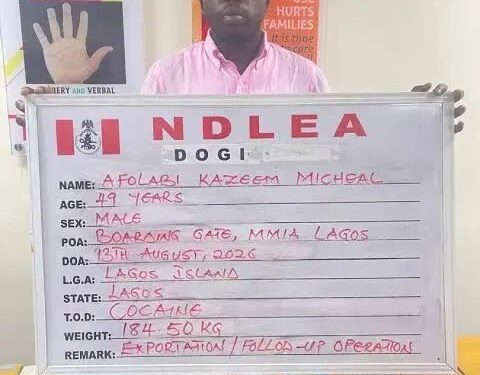 USE
HURTS
FAMILIES
It is time
to care
BERY AND VERBAL
NDLEA
DOGI
NAME: AFOLABI KAZEEM MICHEAL
AGE: 49 YEARS
SEX: MALE
POA: BOARDING GATE, MMIA LAGOS
DOA: 13TH AUGUST, 2026
L.G.A: LAGOS ISLAND
STATE: LAGOS
T.O.D: COCAINE
WEIGHT: 184.50KG
REMARK: EXPORTATION/FOLLOD-UP OPERATION